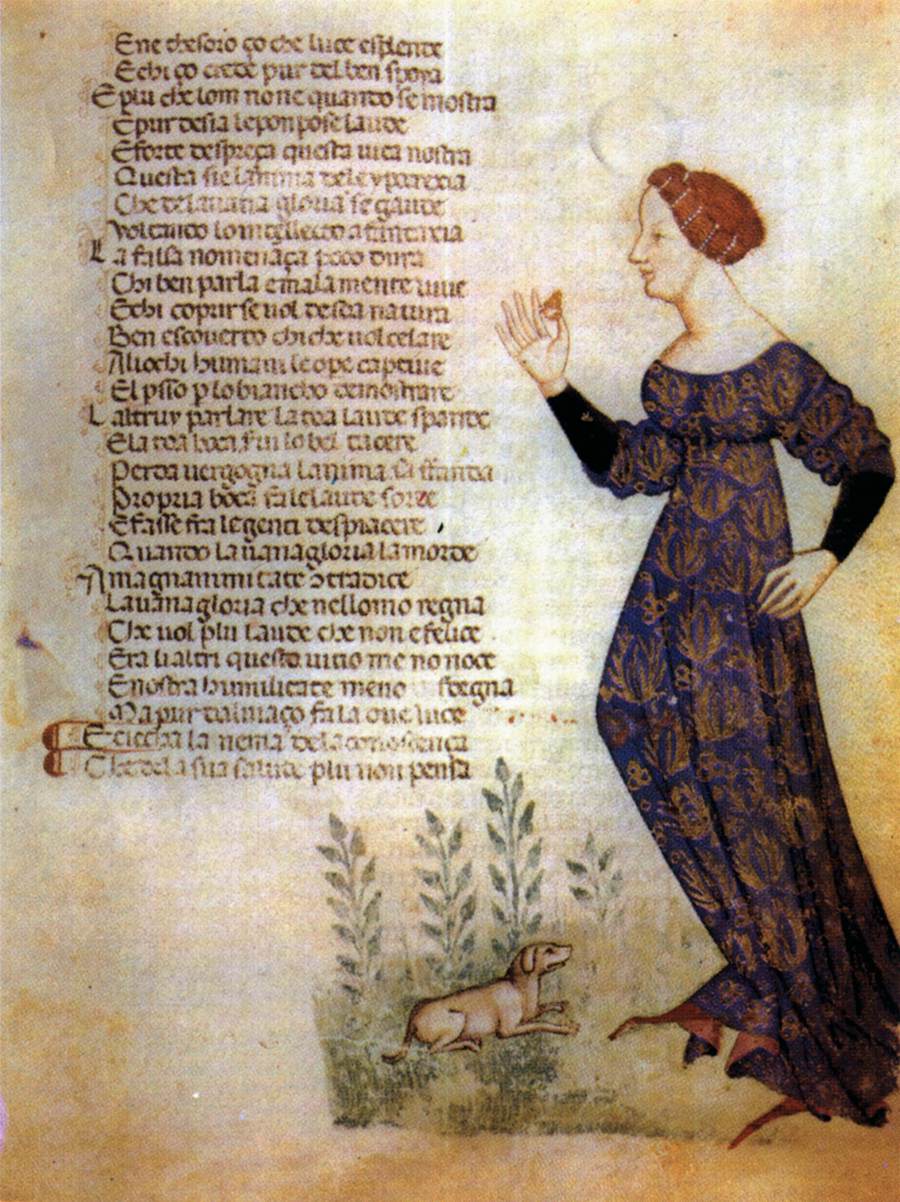 E ne thesoro ço che luce esplente
E chi ço crede pur del ben spera
E piu che lom non e quando se mostra
E pur desia le pompose laude
E forte despreça questa uita nostra
Questa sie lanima
Che dela uana gloria se gaude
Voltando lo intellecto a fantaxia
La falsa nomenança poco dura
Chi ben parla e mala mente uiue
E chi coprir se uol de sea natura
Ben escouerto chi che uol celare
Ali ochi humani le ope captiue
El psso p lo biancho demostrare
Laltruy parlare la toa laude spande
E la toa boca lo bel tacere
Perda uergogna lanima
Propria boca fa le laude sorde
E fasse fra le genti despiacere
Quando la uana gloria la morde
A magnanimitate ɔtradice
La uana gloria che nellomo regna
Che uol plu laude che non e felice
Era li altri questo uitio me no noce
E nostra humilitate meno sdegna
Ma pur dalmaço fa la oue luce
E ciecha la mente dela conoscença
Che dela sua salute plu non pensa